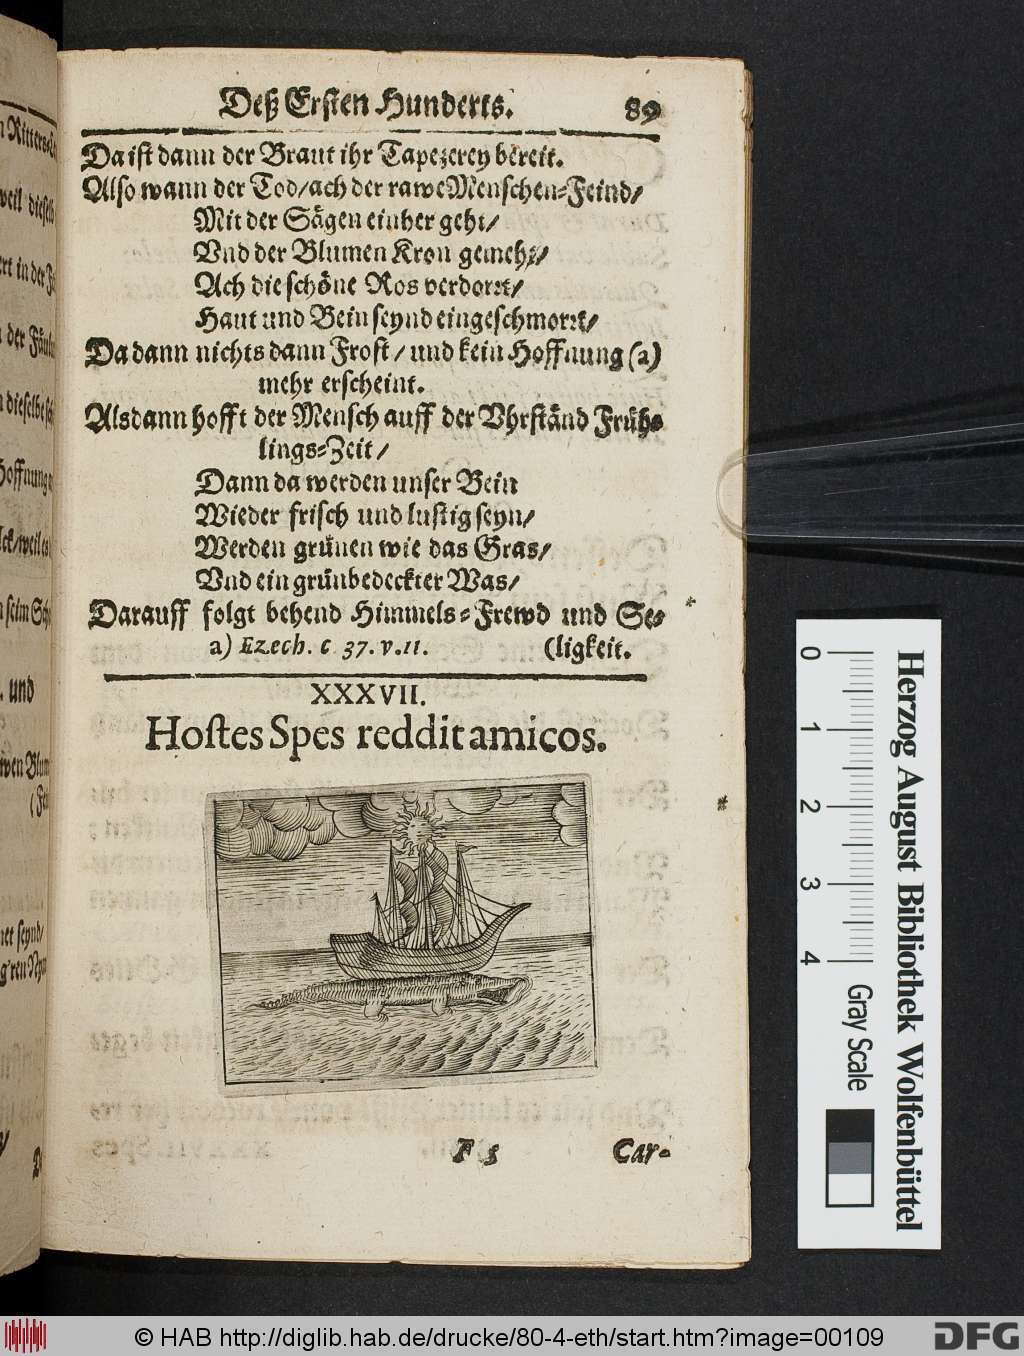 Deß Ersten Hunderts. 89
Da ist dann der Braut ihr Tapezerey bereit.
Also wann der Tod/ach der rawe Menschen-Feind/
Mit der Sägen einher geht/
Vnd der Blumen Kron gemeht/
Ach die schöne Ros verdorꝛt/
Haut und Bein seynd eingeschmorꝛt/
Da dann nichts dann Frost / und kein Hoffnung (a)
mehr erscheint.
Alsdann hofft der Mensch auff der Vhrständ Früh-
lings-Zeit /
Dann da werden unser Bein
Wieder frisch und lustig seyn/
Werden grünen wie das Gras/
Vnd ein grünbedeckter Was/
Darauff folgt behend Himmels-Frewd und Se-
a) Ezech. c 37. v. 11. (ligkeit.
XXXVII.
Hostes Spes reddit amicos.
F 5 Car-
0 1 2 3 4
Herzog August Bibliothek Wolfenbüttel
Gray Scale
© HAB http://diglib.hab.de/drucke/80-4-eth/start.htm?image=00109
DFG